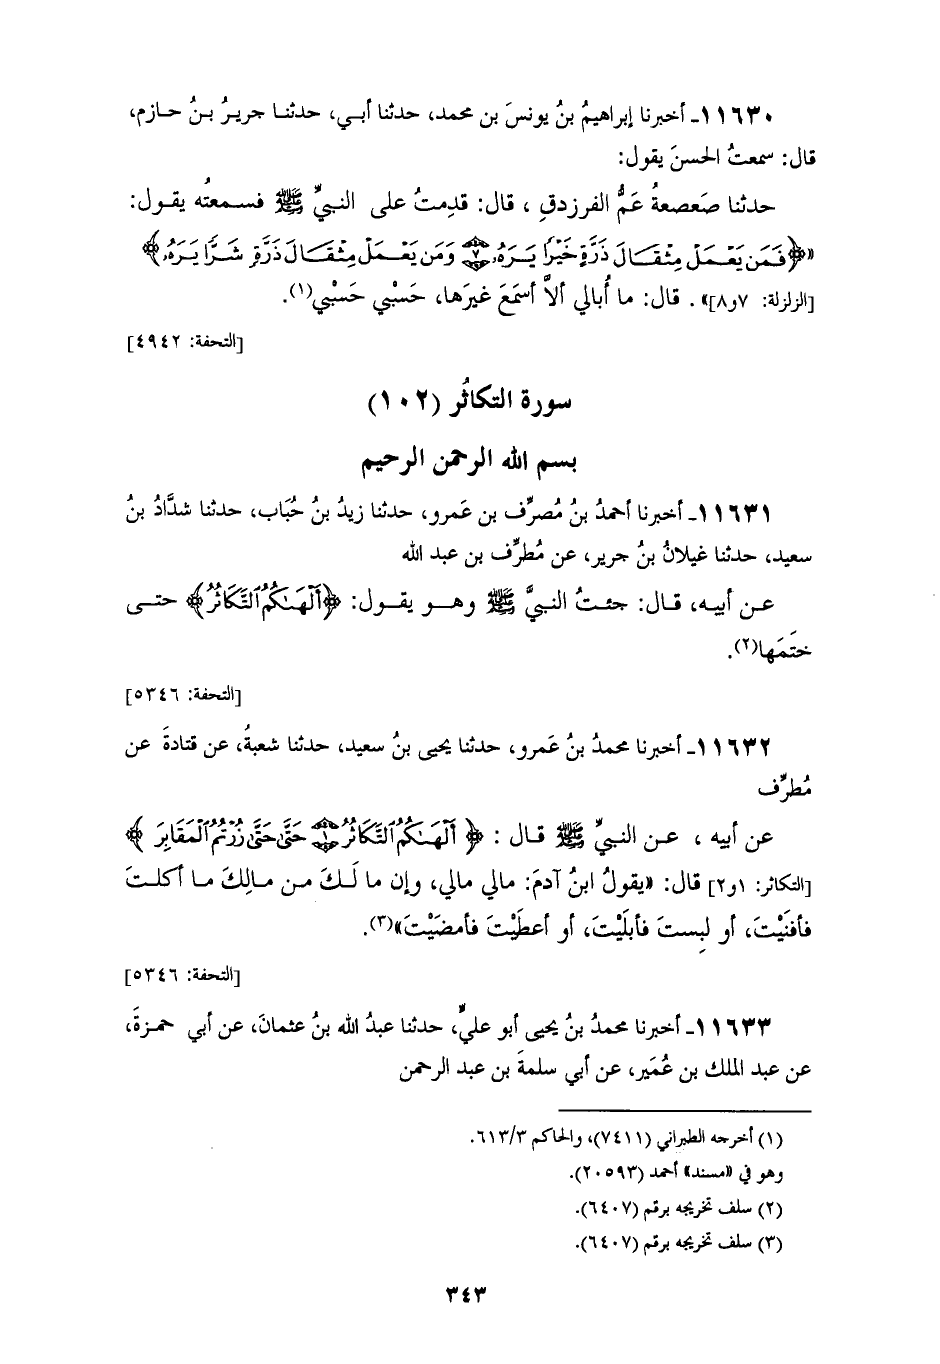 ١١٦٣٠ـ أخبرنا إبراهيمُ بنُ يونسَ بن محمد، حدثنا أبـي، حدثنـا جريـرُ بـنُ حـازم،
قال: سمعتُ الحسنَ يقول:
حدثنا صَعصعةُ عَمُّ الفرزدقِ ، قال: قدِمتُ على النبيِّ ﷺ فسـمعتُه يقـول:
«﴿فَمَن يَعْمَلْ مِثْقَالَ ذَرَّةٍ خَيْرًا يَرَهُۥ ٧ وَمَن يَعْمَلْ مِثْقَالَ ذَرَّةٍ شَرًّا يَرَهُۥ﴾
[الزلزلة: ٧و٨]» . قال: ما أُبالي ألاَّ أسمَعَ غيرَها، حَسْبي حَسْبي(١).
[التحفة: ٤٩٤٢]
سورة التكاثُر (١٠٢)
بسم الله الرحمن الرحيم
١١٦٣١ـ أخبرنا أحمدُ بنُ مُصرِّف بن عَمرو، حدثنا زيدُ بنُ حُبَاب، حدثنا شدَّادُ بنُ
سعيد، حدثنا غيلانُ بنُ جرير، عن مُطرِّف بن عبد الله
عـن أبيـه، قـال: جئـتُ النبيَّ ﷺ وهـو يقـول: ﴿أَلْهَىٰكُمُ ٱلتَّكَاثُرُ﴾ حتـى
ختَمَها(٢).
[التحفة: ٥٣٤٦]
١١٦٣٢ـ أخبرنا محمدُ بنُ عَمرو، حدثنا يحيى بنُ سعيد، حدثنا شعبةُ، عن قتادةَ عن
مُطرِّف
عن أبيه ، عـن النبـيِّ ﷺ قـال : ﴿ أَلْهَىٰكُمُ ٱلتَّكَاثُرُ ١ حَتَّىٰ حَتَّىٰ زُرْتُمُ ٱلْمَقَابِرَ ﴾
[التكاثر: ١و٢] قال: «يقولُ ابنُ آدمَ: مالي مالي، وإن ما لَـكَ مـن مـالِكَ مـا أكلـتَ
فأفنَيْتَ، أو لبِستَ فأبلَيْتَ، أو أعطَيْتَ فأمضَيْتَ»(٣).
[التحفة: ٥٣٤٦]
١١٦٣٣ـ أخبرنا محمدُ بنُ يحيى أبو عليٍّ، حدثنا عبدُ الله بنُ عثمانَ، عن أبي حمـزةَ،
عن عبد الملك بن عُمَير، عن أبي سلمةَ بن عبد الرحمن
(١) أخرجه الطبراني (٧٤١١)، والحاكم ٦١٣/٣.
وهو في «مسند» أحمد (٢٠٥٩٣).
(٢) سلف تخريجه برقم (٦٤٠٧).
(٣) سلف تخريجه برقم (٦٤٠٧).
٣٤٣